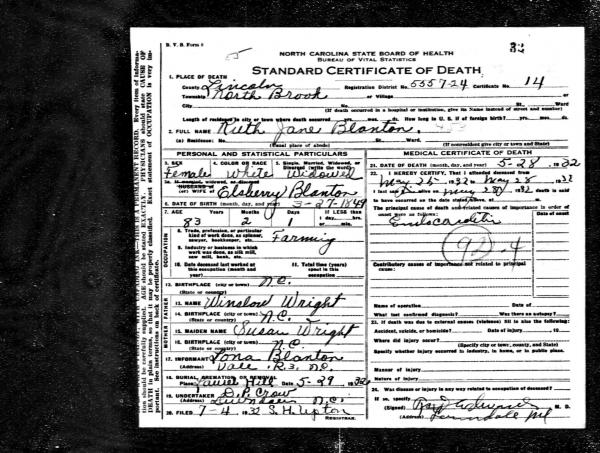 B. V. S. Form 8
32
NORTH CAROLINA STATE BOARD OF HEALTH
BUREAU OF VITAL STATISTICS
STANDARD CERTIFICATE OF DEATH
1. PLACE OF DEATH
County Lincoln Registration District No. 5557-24 Certificate No. 14
Township North Brook or Village or
City No. St. Ward
(If death occurred in a hospital or institution, give its Name instead of street and number)
Length of residence in city or town where death occurred yrs. mos. ds. How long in U. S. if of foreign birth? yrs. mos. ds.
2. FULL NAME Ruth Jane Blanton
(a) Residence: No. St., Ward
(Usual place of abode) (If nonresident give city or town and State)
PERSONAL AND STATISTICAL PARTICULARS
3. SEX 4. COLOR OR RACE 5. Single, Married, Widowed, or Divorced (write the word)
Female White Widowed
5a. If married, widowed, or divorced
HUSBAND of
(or) WIFE of Elsberry Blanton
6. DATE OF BIRTH (month, day, and year) 3-27-1849
7. AGE Years Months Days If LESS than
1 day, hrs.
83 2 1 or min.
OCCUPATION
8. Trade, profession, or particular kind of work done, as spinner, sawyer, bookkeeper, etc. Farming
9. Industry or business in which work was done, as silk mill, saw mill, bank, etc.
10. Date deceased last worked at this occupation (month and year)
11. Total time (years) spent in this occupation
12. BIRTHPLACE (city or town) N.C.
(State or country)
FATHER
13. NAME Winslow Wright
14. BIRTHPLACE (city or town) N.C.
(State or country)
MOTHER
15. MAIDEN NAME Susan Wright
16. BIRTHPLACE (city or town) N.C.
(State or country)
17. INFORMANT Lona Blanton
(Address) Vale, R3, N.C.
18. BURIAL, CREMATION, OR REMOVAL
Place Laurel Hill Date 5-29 1932
19. UNDERTAKER D.P. Crow
(Address) N.C.
20. FILED 7-4 1932 S. H. Upton
REGISTRAR.
MEDICAL CERTIFICATE OF DEATH
21. DATE OF DEATH (month, day, and year) 5-28, 1932
22. I HEREBY CERTIFY, That I attended deceased from
May 25 1932 to May 28 1932
I last saw h alive on May 28 1932 death is said
to have occurred on the date stated above, at m.
The principal cause of death and related causes of importance in order of onset were as follows: Date of onset
Endocarditis
Contributory causes of importance not related to principal cause:
Name of operation Date of
What test confirmed diagnosis? Was there an autopsy?
23. If death was due to external causes (violence) fill in also the following:
Accident, suicide, or homicide? Date of injury 19
Where did injury occur?
(Specify city or town, county, and State)
Specify whether injury occurred in industry, in home, or in public place.
Manner of injury
Nature of injury
24. Was disease or injury in any way related to occupation of deceased?
If so, specify
(Signed) M. D.
(Address)